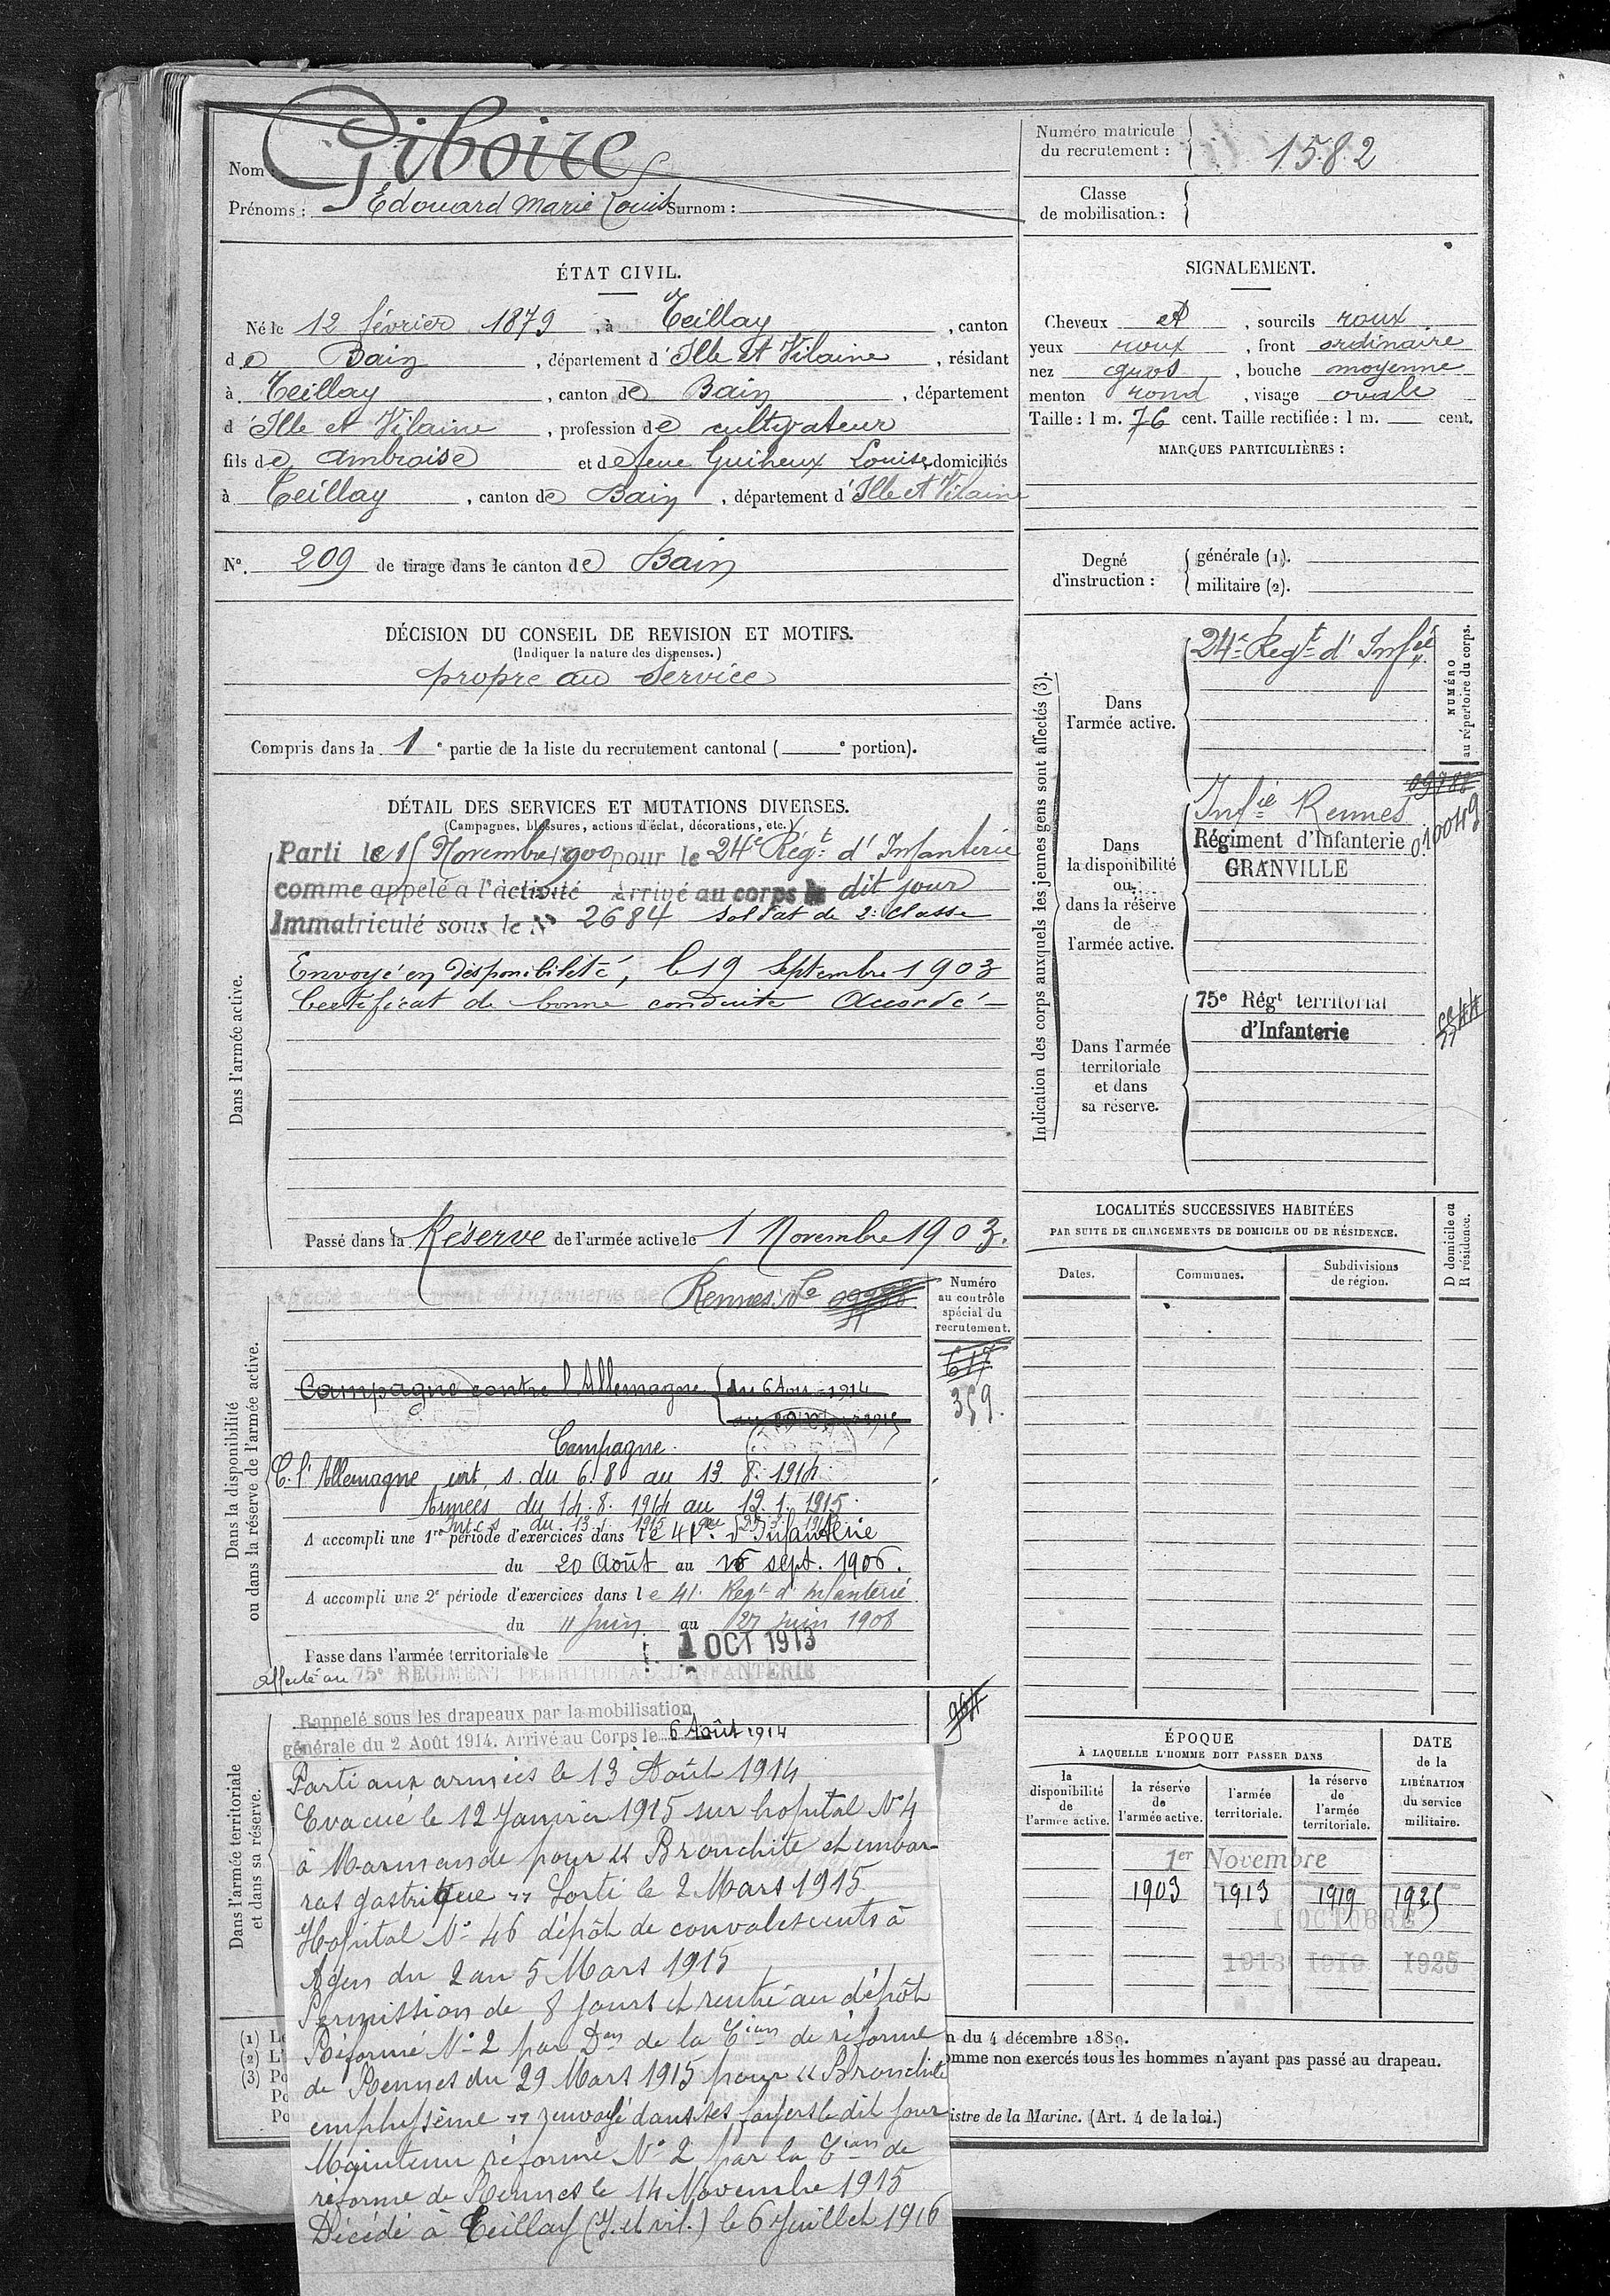 Nom : Giboire
Prénoms : Edouard Marie Louis Surnom :
Numéro matricule
du recrutement : 1582
Classe
de mobilisation :
ÉTAT CIVIL.
Né le 12 février 1879, à Teillay, canton
de Bain, département d'Ille et Vilaine, résidant
à Teillay, canton de Bain, département
d'Ille et Vilaine, profession de cultivateur
fils de Ambroise et de feue Guiheux Louise, domiciliés
à Teillay, canton de Bain, département d'Ille et Vilaine
N°. 209 de tirage dans le canton de Bain
DÉCISION DU CONSEIL DE REVISION ET MOTIFS.
(Indiquer la nature des dispenses.)
propre au service
Compris dans la 1e partie de la liste du recrutement cantonal ( e portion).
DÉTAIL DES SERVICES ET MUTATIONS DIVERSES.
(Campagnes, blessures, actions d'éclat, décorations, etc.)
Dans l'armée active.
Parti le 15 Novembre 1900 pour le 24e Régt d'Infanterie
comme appelé a l'activité Arrivé au corps le dit jour
Immatriculé sous le N° 2684 soldat de 2e classe
Envoyé en disponibilité, le 19 Septembre 1903
Certificat de bonne conduite Accordé
Passé dans la Réserve de l'armée active le 1 Novembre 1903.
Dans la disponibilité
ou dans la réserve de l'armée active.
Affecté au Régiment d'Infanterie de Rennes. Nle 09788
Numéro
au contrôle
spécial du
recrutement.
617
359.
Campagne contre l'Allemagne du 6 Aou 1914
Campagne.
C. l'Allemagne int. s. du 6.8 au 13.8.1914
Armées du 14.8.1914 au 12.1.1915
Int. c. s du 13.1.1915
A accompli une 1re période d'exercices dans le 41e d'Infanterie
du 20 Août au 16 sept. 1906.
A accompli une 2e période d'exercices dans le 41e Regt d'infanterie
du 11 juin au 27 juin 1908
Passé dans l'armée territoriale le 1 OCT 1913
affecté au 75e REGIMENT TERRITORIAL D'INFANTERIE
Dans l'armée territoriale
et dans sa réserve.
Rappelé sous les drapeaux par la mobilisation
générale du 2 Août 1914. Arrivé au Corps le 6 Août 1914
Parti aux armées le 13 Août 1914
Evacué le 12 Janvier 1915 sur hopital N° 4
à Marmande pour " Bronchite et embar-
ras gastrique " Sorti le 2 Mars 1915
Hopital N° 46 dépôt de convalescents à
Agen du 2 au 5 Mars 1915
Permission de 8 jours et rentré au dépôt
Réformé N° 2 par Don de la Cion de réforme
de Rennes du 29 Mars 1915 pour " Bronchite
emphysème " renvoyé dans ses foyers le dit jour
Maintenu réformé N° 2 par la Cion de
réforme de Rennes le 14 Novembre 1915
Décédé à Teillay (I. et vil.) le 6 Juillet 1916
SIGNALEMENT.
Cheveux et, sourcils roux
yeux roux, front ordinaire
nez gros, bouche moyenne
menton rond, visage ovale
Taille : 1 m. 76 cent. Taille rectifiée : 1 m. cent.
MARQUES PARTICULIÈRES :
Degré
d'instruction :
générale (1).
militaire (2).
Indication des corps auxquels les jeunes gens sont affectés (3).
NUMÉRO
au répertoire du corps.
Dans
l'armée active.
24e Regt d'Infie
Dans
la disponibilité
ou
dans la réserve
de
l'armée active.
Infie Rennes 09788
Régiment d'Infanterie 010049
GRANVILLE
Dans l'armée
territoriale
et dans
sa réserve.
75e Régt territorial
d'Infanterie
LOCALITÉS SUCCESSIVES HABITÉES
PAR SUITE DE CHANGEMENTS DE DOMICILE OU DE RÉSIDENCE.
Dates.
Communes.
Subdivisions
de région.
D domicile ou
R résidence.
ÉPOQUE
À LAQUELLE L'HOMME DOIT PASSER DANS
DATE
de la
LIBÉRATION
du service
militaire.
la
disponibilité
de
l'armée active.
la réserve
de
l'armée active.
l'armée
territoriale.
la réserve
de
l'armée
territoriale.
1er Novembre
1903 1913 1919 1925
1 OCTOBRE
1913 1919 1925
(1) Le
(2) L'
(3) Po
Po
Po
n du 4 décembre 1889.
omme non exercés tous les hommes n'ayant pas passé au drapeau.
istre de la Marine. (Art. 4 de la loi.)